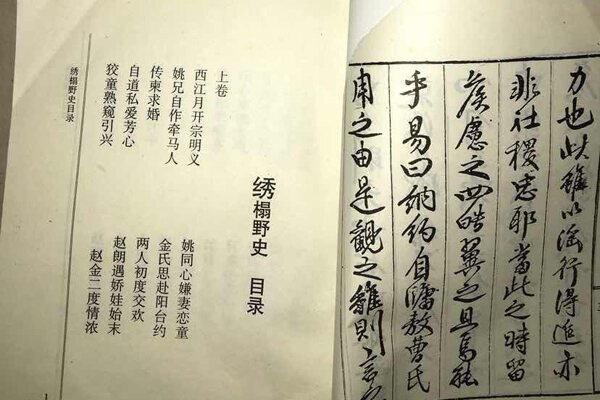 力也此雖以淫行得進亦
非社稷忠耶當此之時留
侯慮之四皓翼之且焉能
乎易曰納約自牖教曹氏
用之由是觀之雖則言
绣榻野史 目录
上卷
西江月开宗明义 姚同心嫌妻恋童
姚兄自作牵马人 金氏思赴阳台约
传柬求婚 两人初度交欢
自道私爱芳心 赵朗遇娇娃始末
狡童熟窥引兴 赵金二度情浓
绣榻野史目录
1